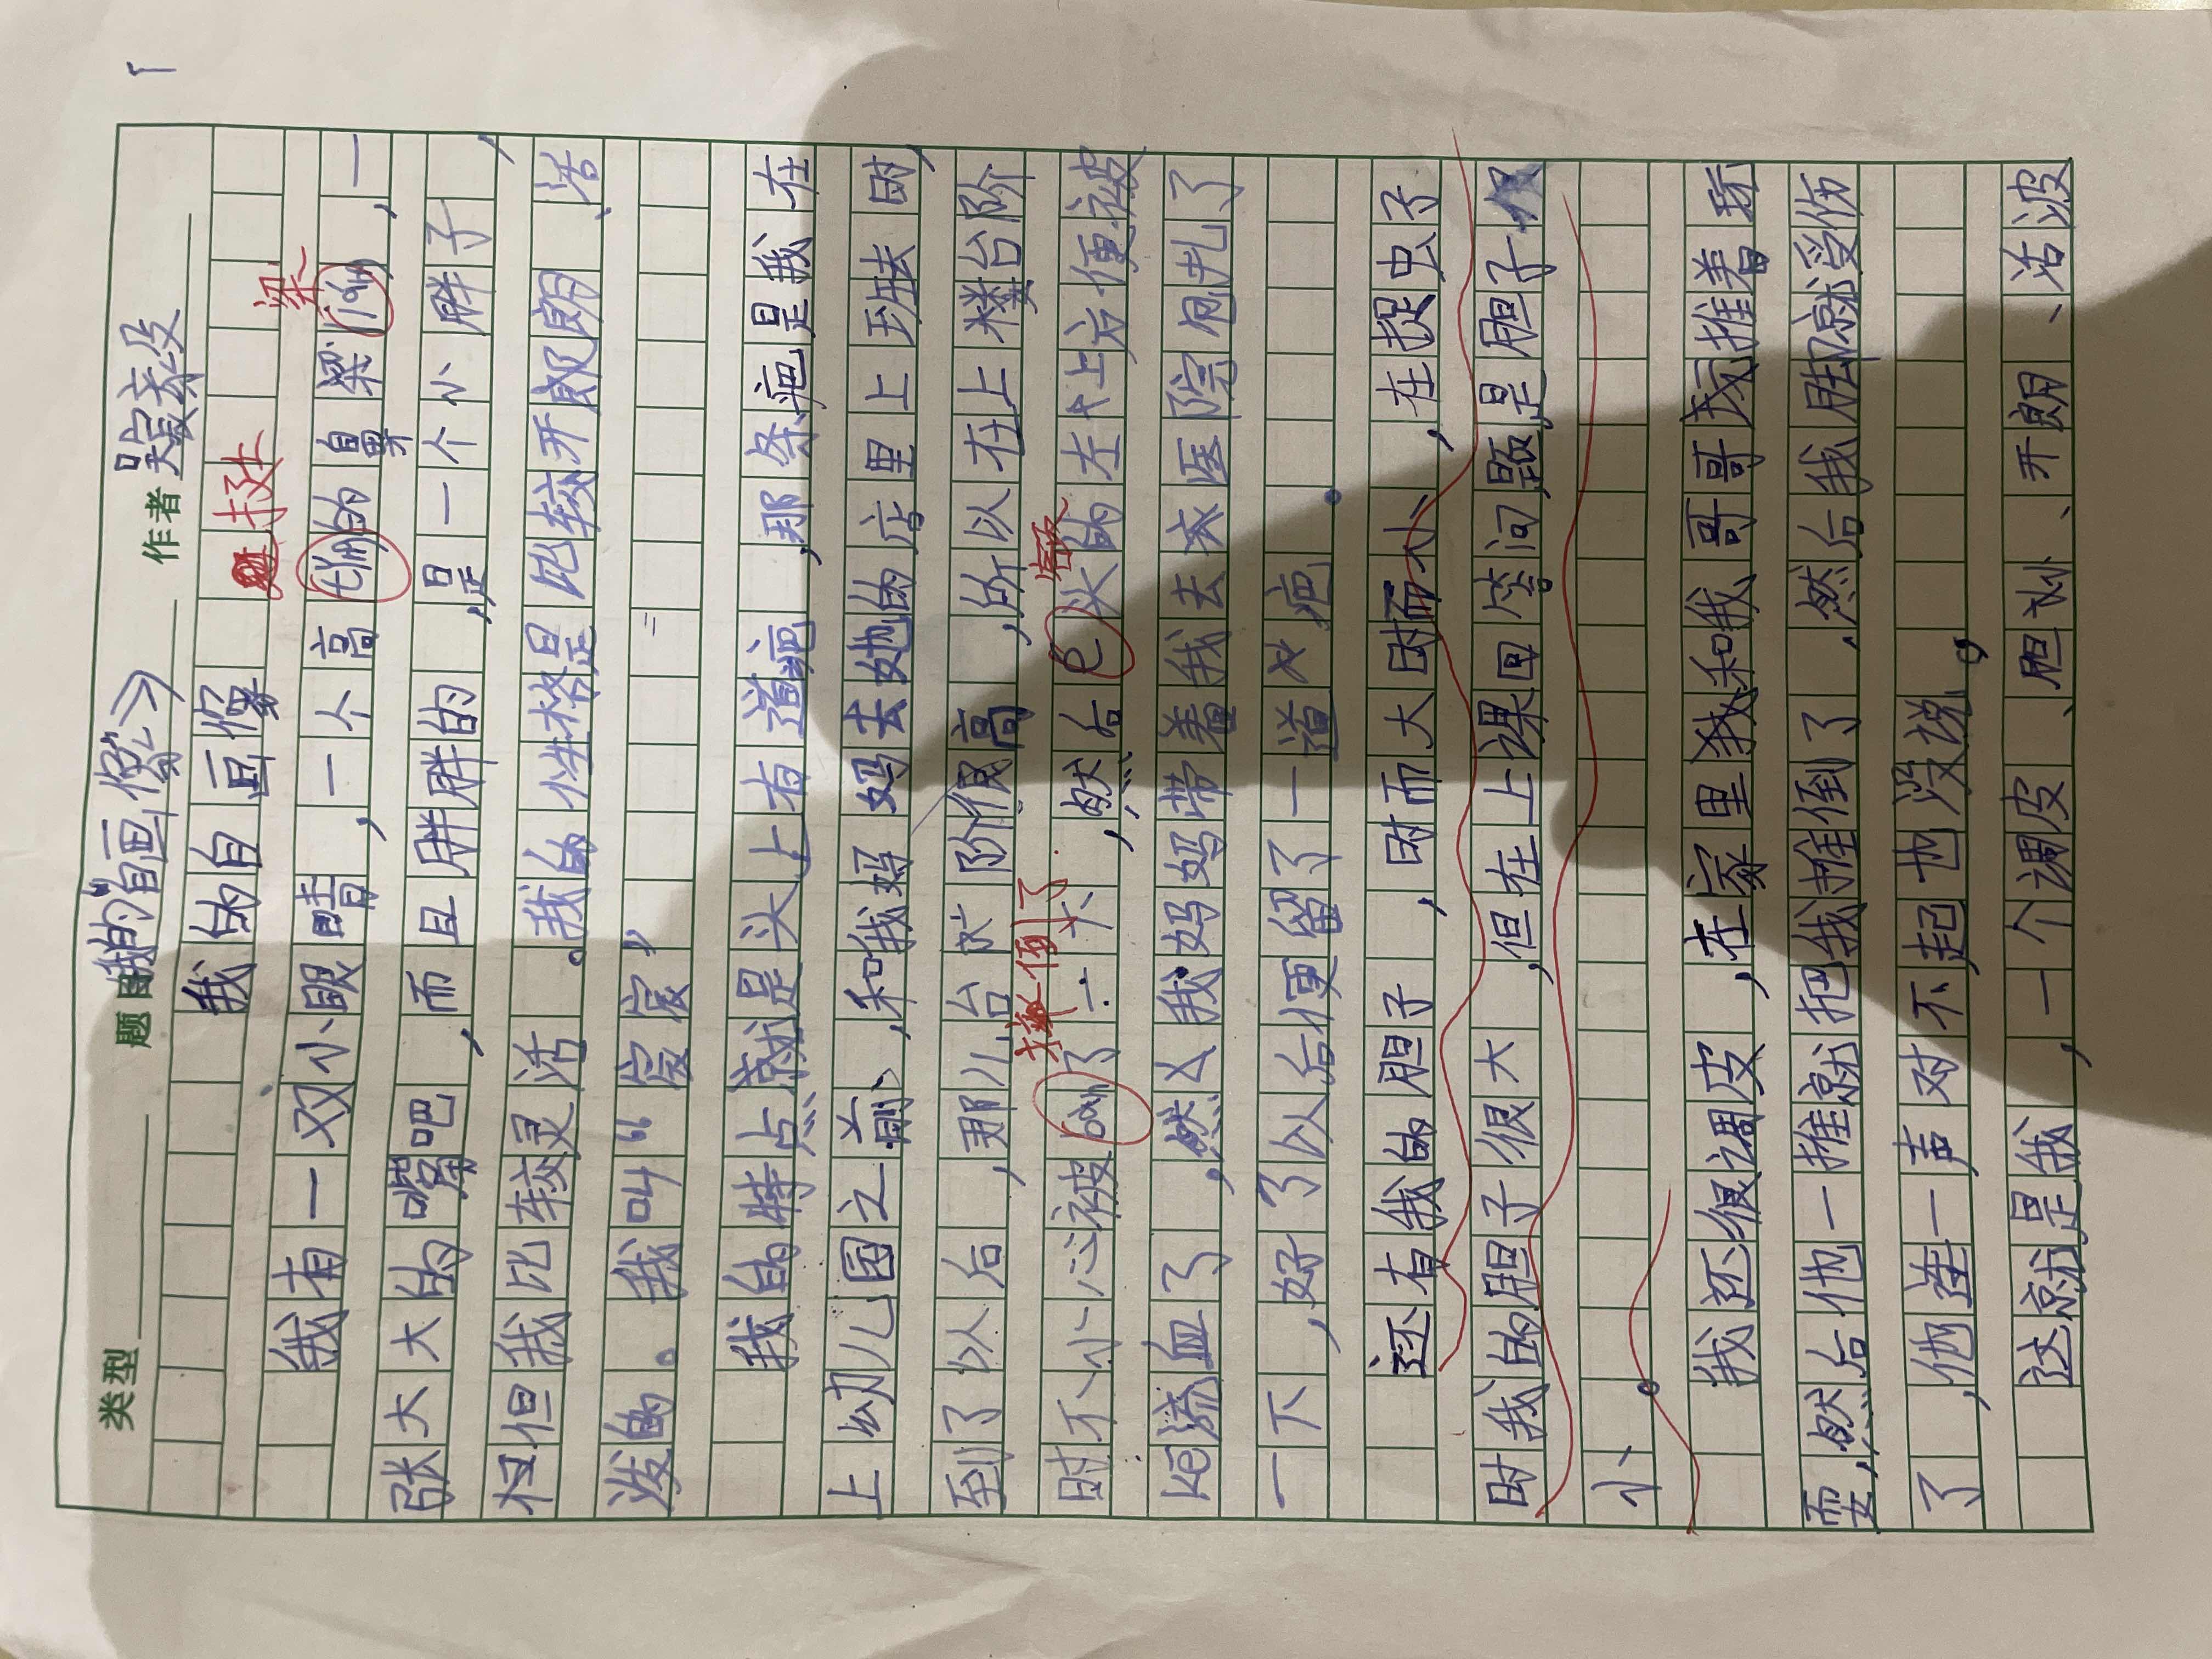 类型 题目 我的"自画像》 作者 吴宸段
我的自画像
挺
梁
我有一双小眼睛，一个高tǐng的鼻梁liáng，一
张大大的嘴吧，而且胖胖的，是一个小胖子，
但我比较灵活。我的性格是比较开朗、活
泼的。我叫"宸宸"
我的特点就是头上有道疤，那条疤是我在
上幼儿园之前，和我妈妈去她的店里上班去时，
到了以后，那儿台阶很高，所以在上楼台阶
摔倒了
额
时不小心被bàn了一下，然后e头的左上方便被
流血了，然后我妈妈带着我去医院包扎了
一下，好了以后便留了一道疤。
还有我的胆子，时而大时而小，在捉虫子
时我的胆子很大，但在上课回答问题，是胆子
小。
我还很调皮，在家里我和我哥哥我推着玩
耍，然后他一推就把我推倒了，然后我脚就受伤
了，他连一声对不起也没说。
这就是我，一个调皮、胆小、开朗、活波